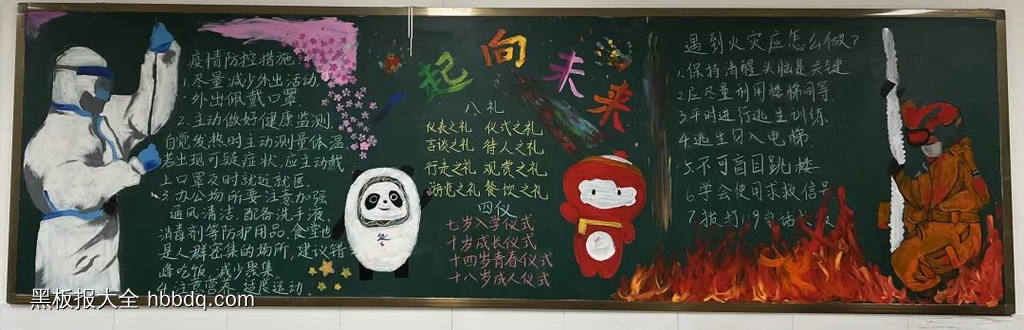 疫情防控措施
1.尽量减少外出活动,
外出佩戴口罩.
2.主动做好健康监测.
自觉发热时主动测量体温
若出现可疑症状,应主动戴
上口罩及时就近就医.
3.办公场所要注意加强
通风清洁,配备洗手液、
消毒剂等防护用品.食堂也
是人群密集的场所,建议错
峰吃饭,减少聚集
4.注意营养,适度运动.
一起向未来
八礼
仪表之礼 仪式之礼
言谈之礼 待人之礼
行走之礼 观赏之礼
游览之礼 餐饮之礼
四仪
七岁入学仪式
十岁成长仪式
十四岁青春仪式
十八岁成人仪式
遇到火灾应怎么做?
1.保持清醒头脑是关键
2.应尽量利用楼梯间等
3.平时进行逃生训练
4.逃生切入电梯
5.不可盲目跳楼
6.学会使用求救信号
7.拨打119电话
黑板报大全 hbbdq.com